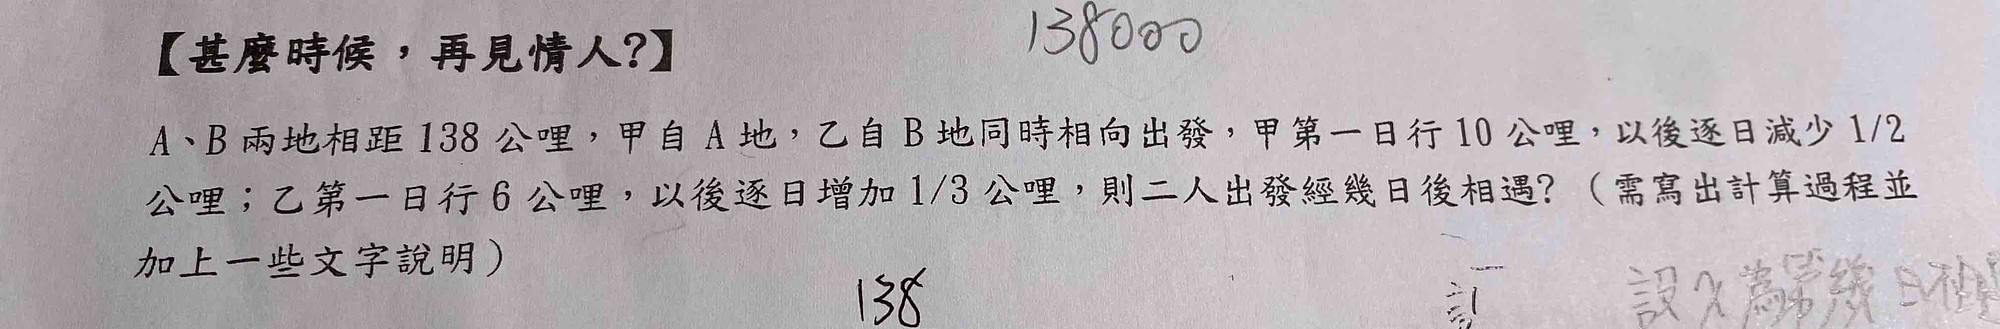 138000
【甚麼時候，再見情人?】
A、B 兩地相距 138 公哩，甲自 A 地，乙自 B 地同時相向出發，甲第一日行 10 公哩，以後逐日減少 1/2
公哩；乙第一日行 6 公哩，以後逐日增加 1/3 公哩，則二人出發經幾日後相遇?（需寫出計算過程並
加上一些文字說明）
138
設 x 為第幾日相